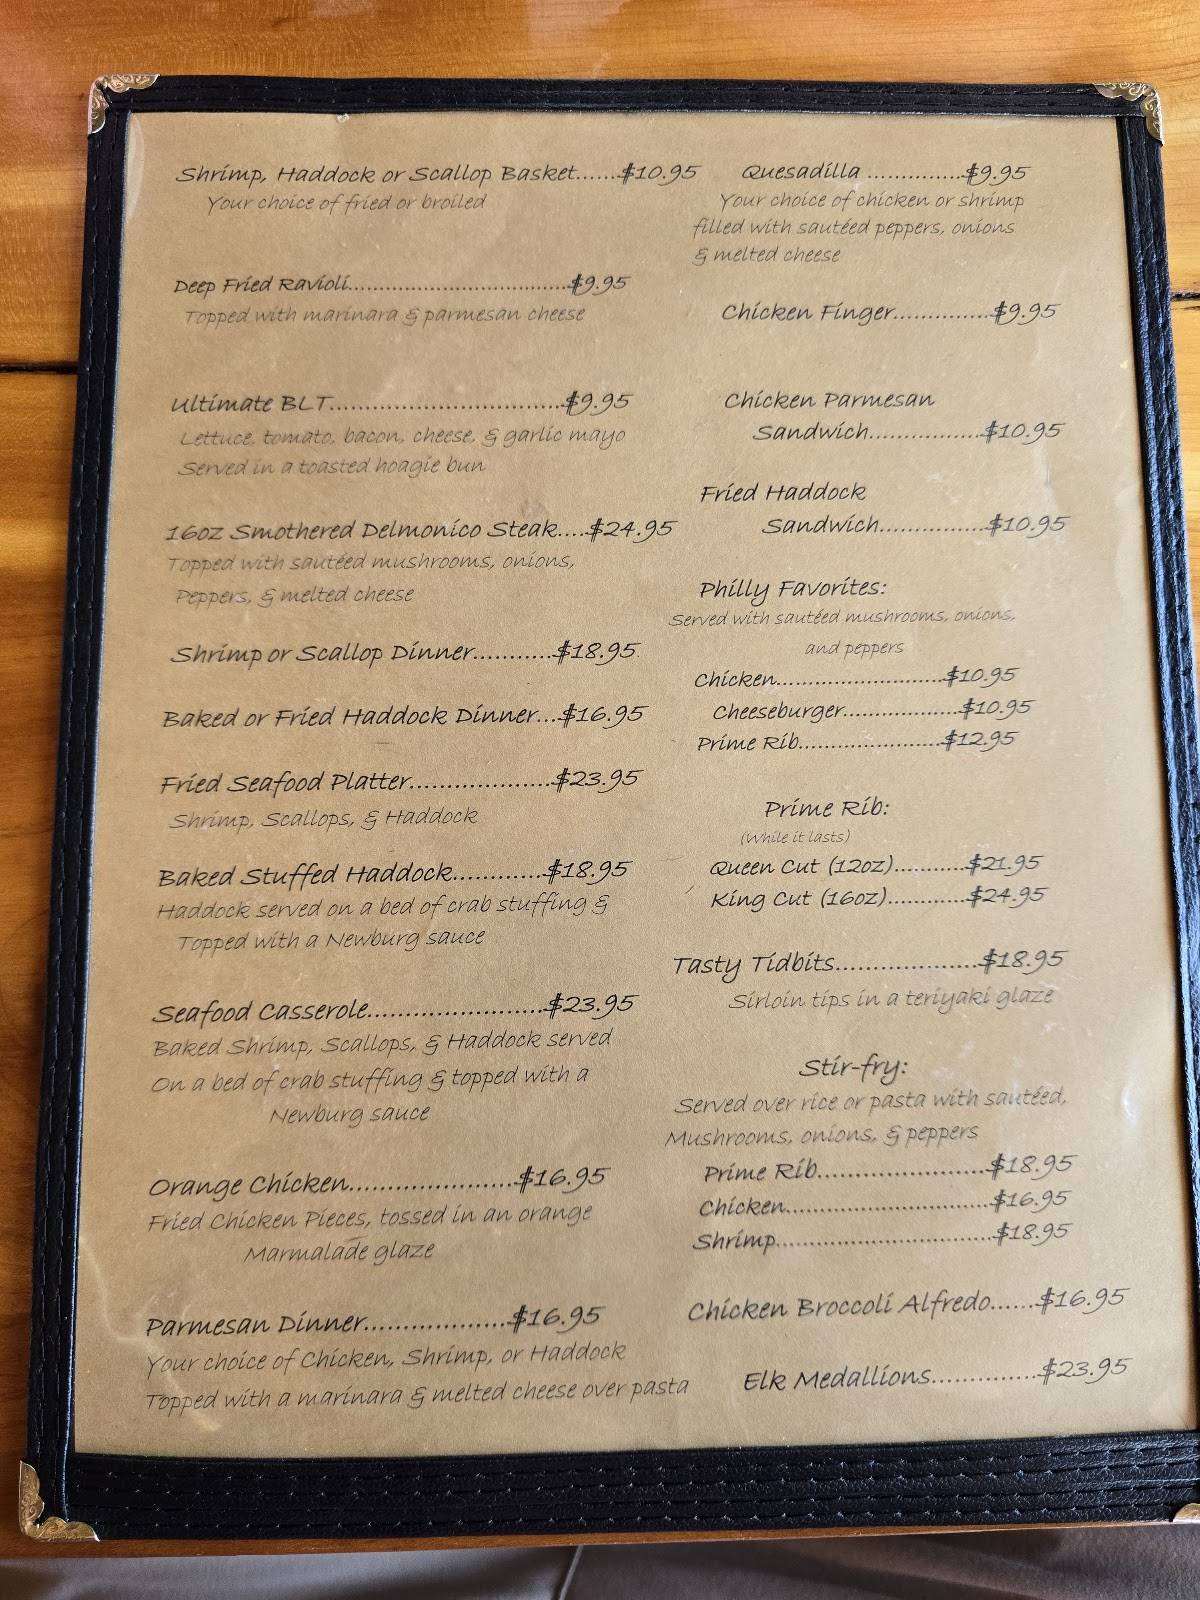 Shrimp, Haddock or Scallop Basket......$10.95
Your choice of fried or broiled
Deep Fried Ravioli....................................$9.95
Topped with marinara & parmesan cheese
Ultimate BLT.......................................$9.95
Lettuce, tomato, bacon, cheese, & garlic mayo
Served in a toasted hoagie bun
16oz Smothered Delmonico Steak....$24.95
Topped with sautéed mushrooms, onions,
Peppers, & melted cheese
Shrimp or Scallop Dinner...........$18.95
Baked or Fried Haddock Dinner...$16.95
Fried Seafood Platter....................$23.95
Shrimp, Scallops, & Haddock
Baked Stuffed Haddock.............$18.95
Haddock served on a bed of crab stuffing &
Topped with a Newburg sauce
Seafood Casserole.........................$23.95
Baked Shrimp, Scallops, & Haddock served
On a bed of crab stuffing & topped with a
Newburg sauce
Orange Chicken.......................$16.95
Fried Chicken Pieces, tossed in an orange
Marmalade glaze
Parmesan Dinner....................$16.95
Your choice of Chicken, Shrimp, or Haddock
Topped with a marinara & melted cheese over pasta
Quesadilla ...............$9.95
Your choice of chicken or shrimp
filled with sautéed peppers, onions
& melted cheese
Chicken Finger...............$9.95
Chicken Parmesan
Sandwich.................$10.95
Fried Haddock
Sandwich................$10.95
Philly Favorites:
Served with sautéed mushrooms, onions,
and peppers
Chicken.........................$10.95
Cheeseburger..................$10.95
Prime Rib......................$12.95
Prime Rib:
(While it lasts)
Queen Cut (12oz)...........$21.95
King Cut (16oz)............$24.95
Tasty Tidbits.....................$18.95
Sirloin tips in a teriyaki glaze
Stir-fry:
Served over rice or pasta with sautéed,
Mushrooms, onions, & peppers
Prime Rib........................$18.95
Chicken.............................$16.95
Shrimp..............................$18.95
Chicken Broccoli Alfredo......$16.95
Elk Medallions...............$23.95